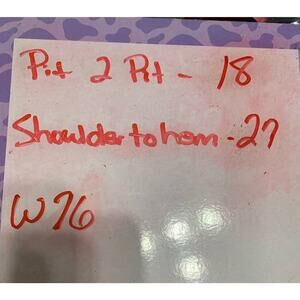 Pit 2 Pit - 18
Shoulder to hem - 27
W76